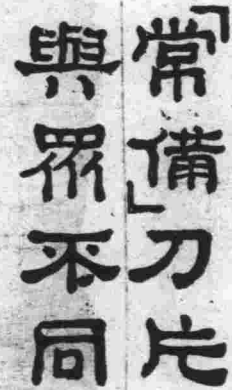 「常備」刀片
與眾不同